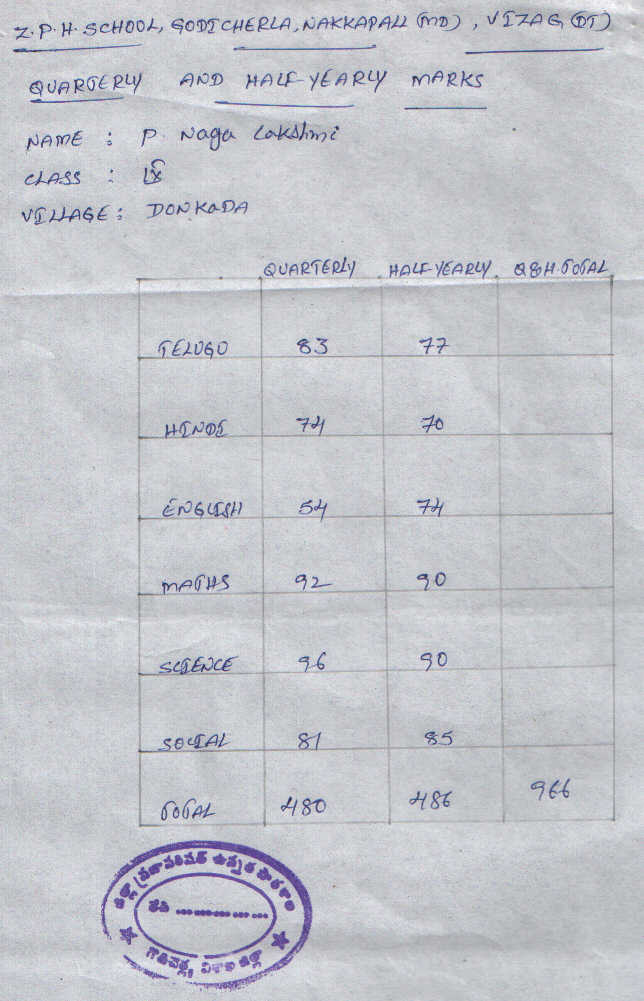 Z.P.H. SCHOOL, GODICHERLA, NAKKAPALL (MD), VIZAG (DT)
QUARTERLY AND HALF-YEARLY MARKS
NAME : P. Naga Lakshmi
CLASS :
VILLAGE : DONKADA
QUARTERLY HALF-YEARLY Q&H.TOTAL
TELUGU 83 77
HINDI 74 70
ENGLISH 54 74
MATHS 92 90
SCIENCE 96 90
SOCIAL 81 85
TOTAL 480 486 966
జిల్లా ప్రజాపరిషత్ ఉన్నత పాఠశాల
తేది ..............
గొడిచెర్ల, విశాఖ జిల్లా